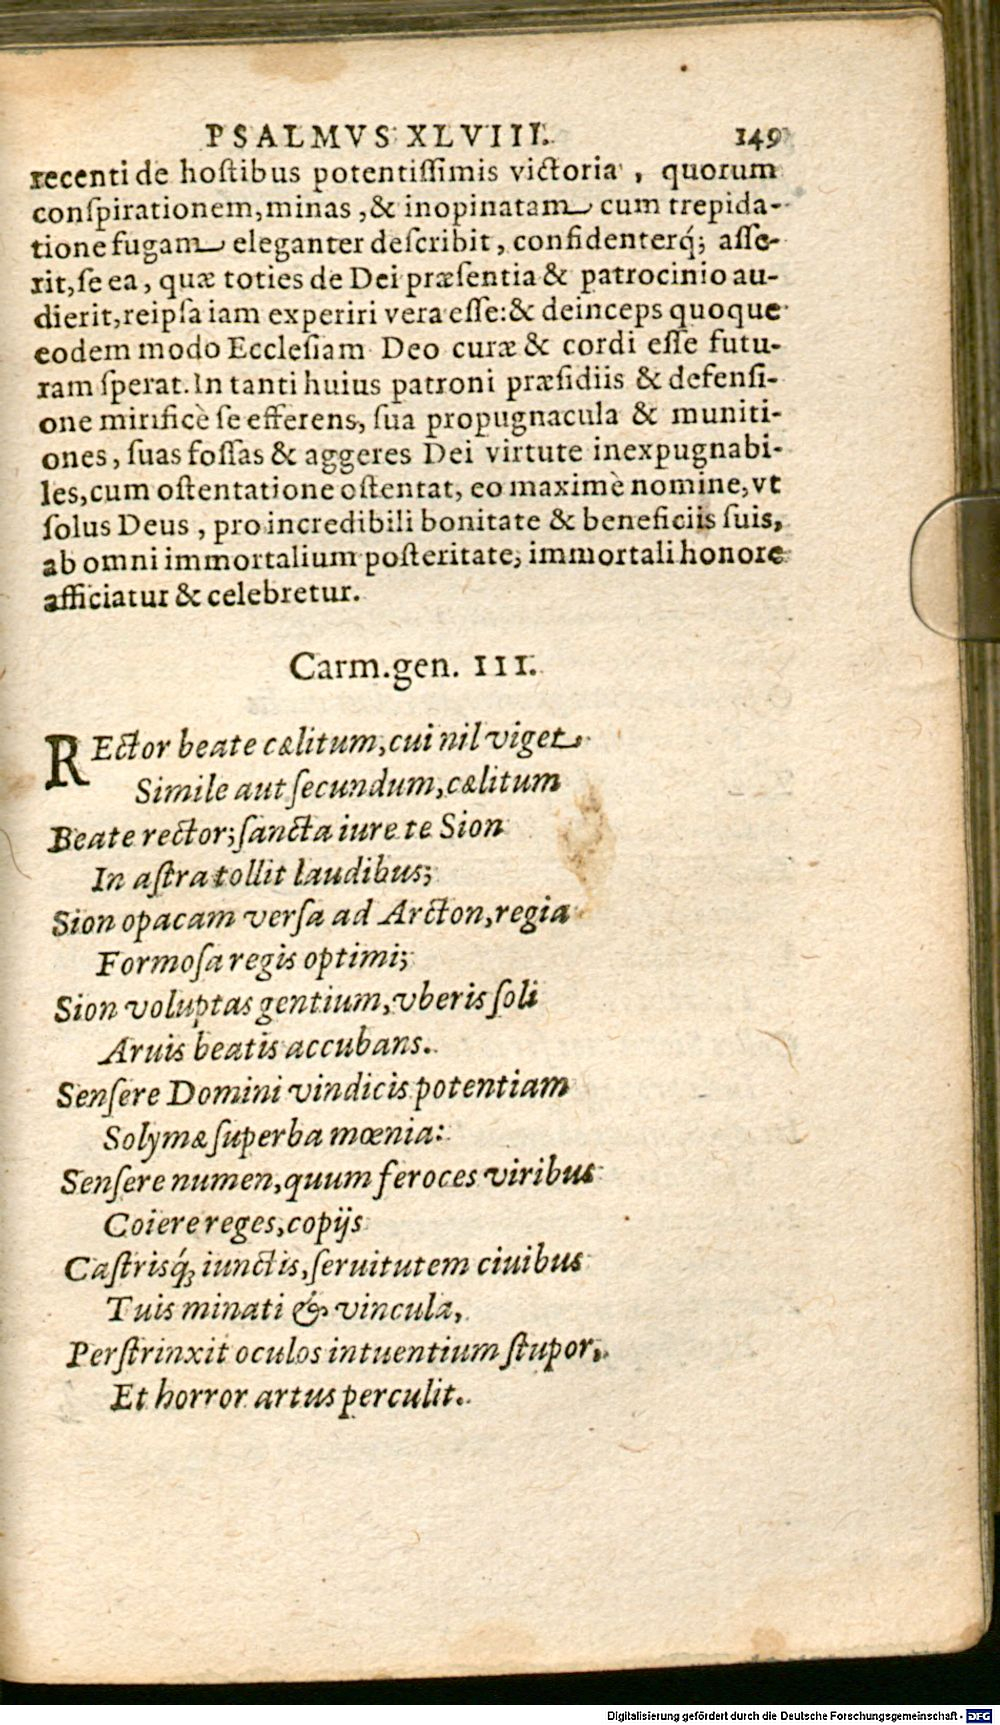 PSALMVS XLVIII. 149
recenti de hoſtibus potentiſſimis victoria, quorum
conſpirationem, minas, & inopinatam cum trepida-
tione fugam eleganter deſcribit, confidenterq́; aſſe-
rit, ſe ea, quæ toties de Dei præſentia & patrocinio au-
dierit, reipſa iam experiri vera eſſe: & deinceps quoque
eodem modo Eccleſiam Deo curæ & cordi eſſe futu-
ram ſperat. In tanti huius patroni præſidiis & defenſi-
one mirificè ſe efferens, ſua propugnacula & muniti-
ones, ſuas foſſas & aggeres Dei virtute inexpugnabi-
les, cum oſtentatione oſtentat, eo maximè nomine, vt
ſolus Deus, pro incredibili bonitate & beneficiis ſuis,
ab omni immortalium poſteritate, immortali honore
afficiatur & celebretur.
Carm. gen. III.
REctor beate cælitum, cui nil viget
Simile aut ſecundum, cælitum
Beate rector; ſancta iure te Sion
In aſtra tollit laudibus;
Sion opacam verſa ad Arcton, regia
Formoſa regis optimi;
Sion voluptas gentium, vberis ſoli
Aruis beatis accubans.
Senſere Domini vindicis potentiam
Solymæ ſuperba mœnia:
Senſere numen, quum feroces viribus
Coiere reges, copijs
Caſtrisq́; iunctis, ſeruitutem ciuibus
Tuis minati & vincula,
Perſtrinxit oculos intuentium ſtupor,
Et horror artus perculit.
Digitalisierung gefördert durch die Deutsche Forschungsgemeinschaft - DFG